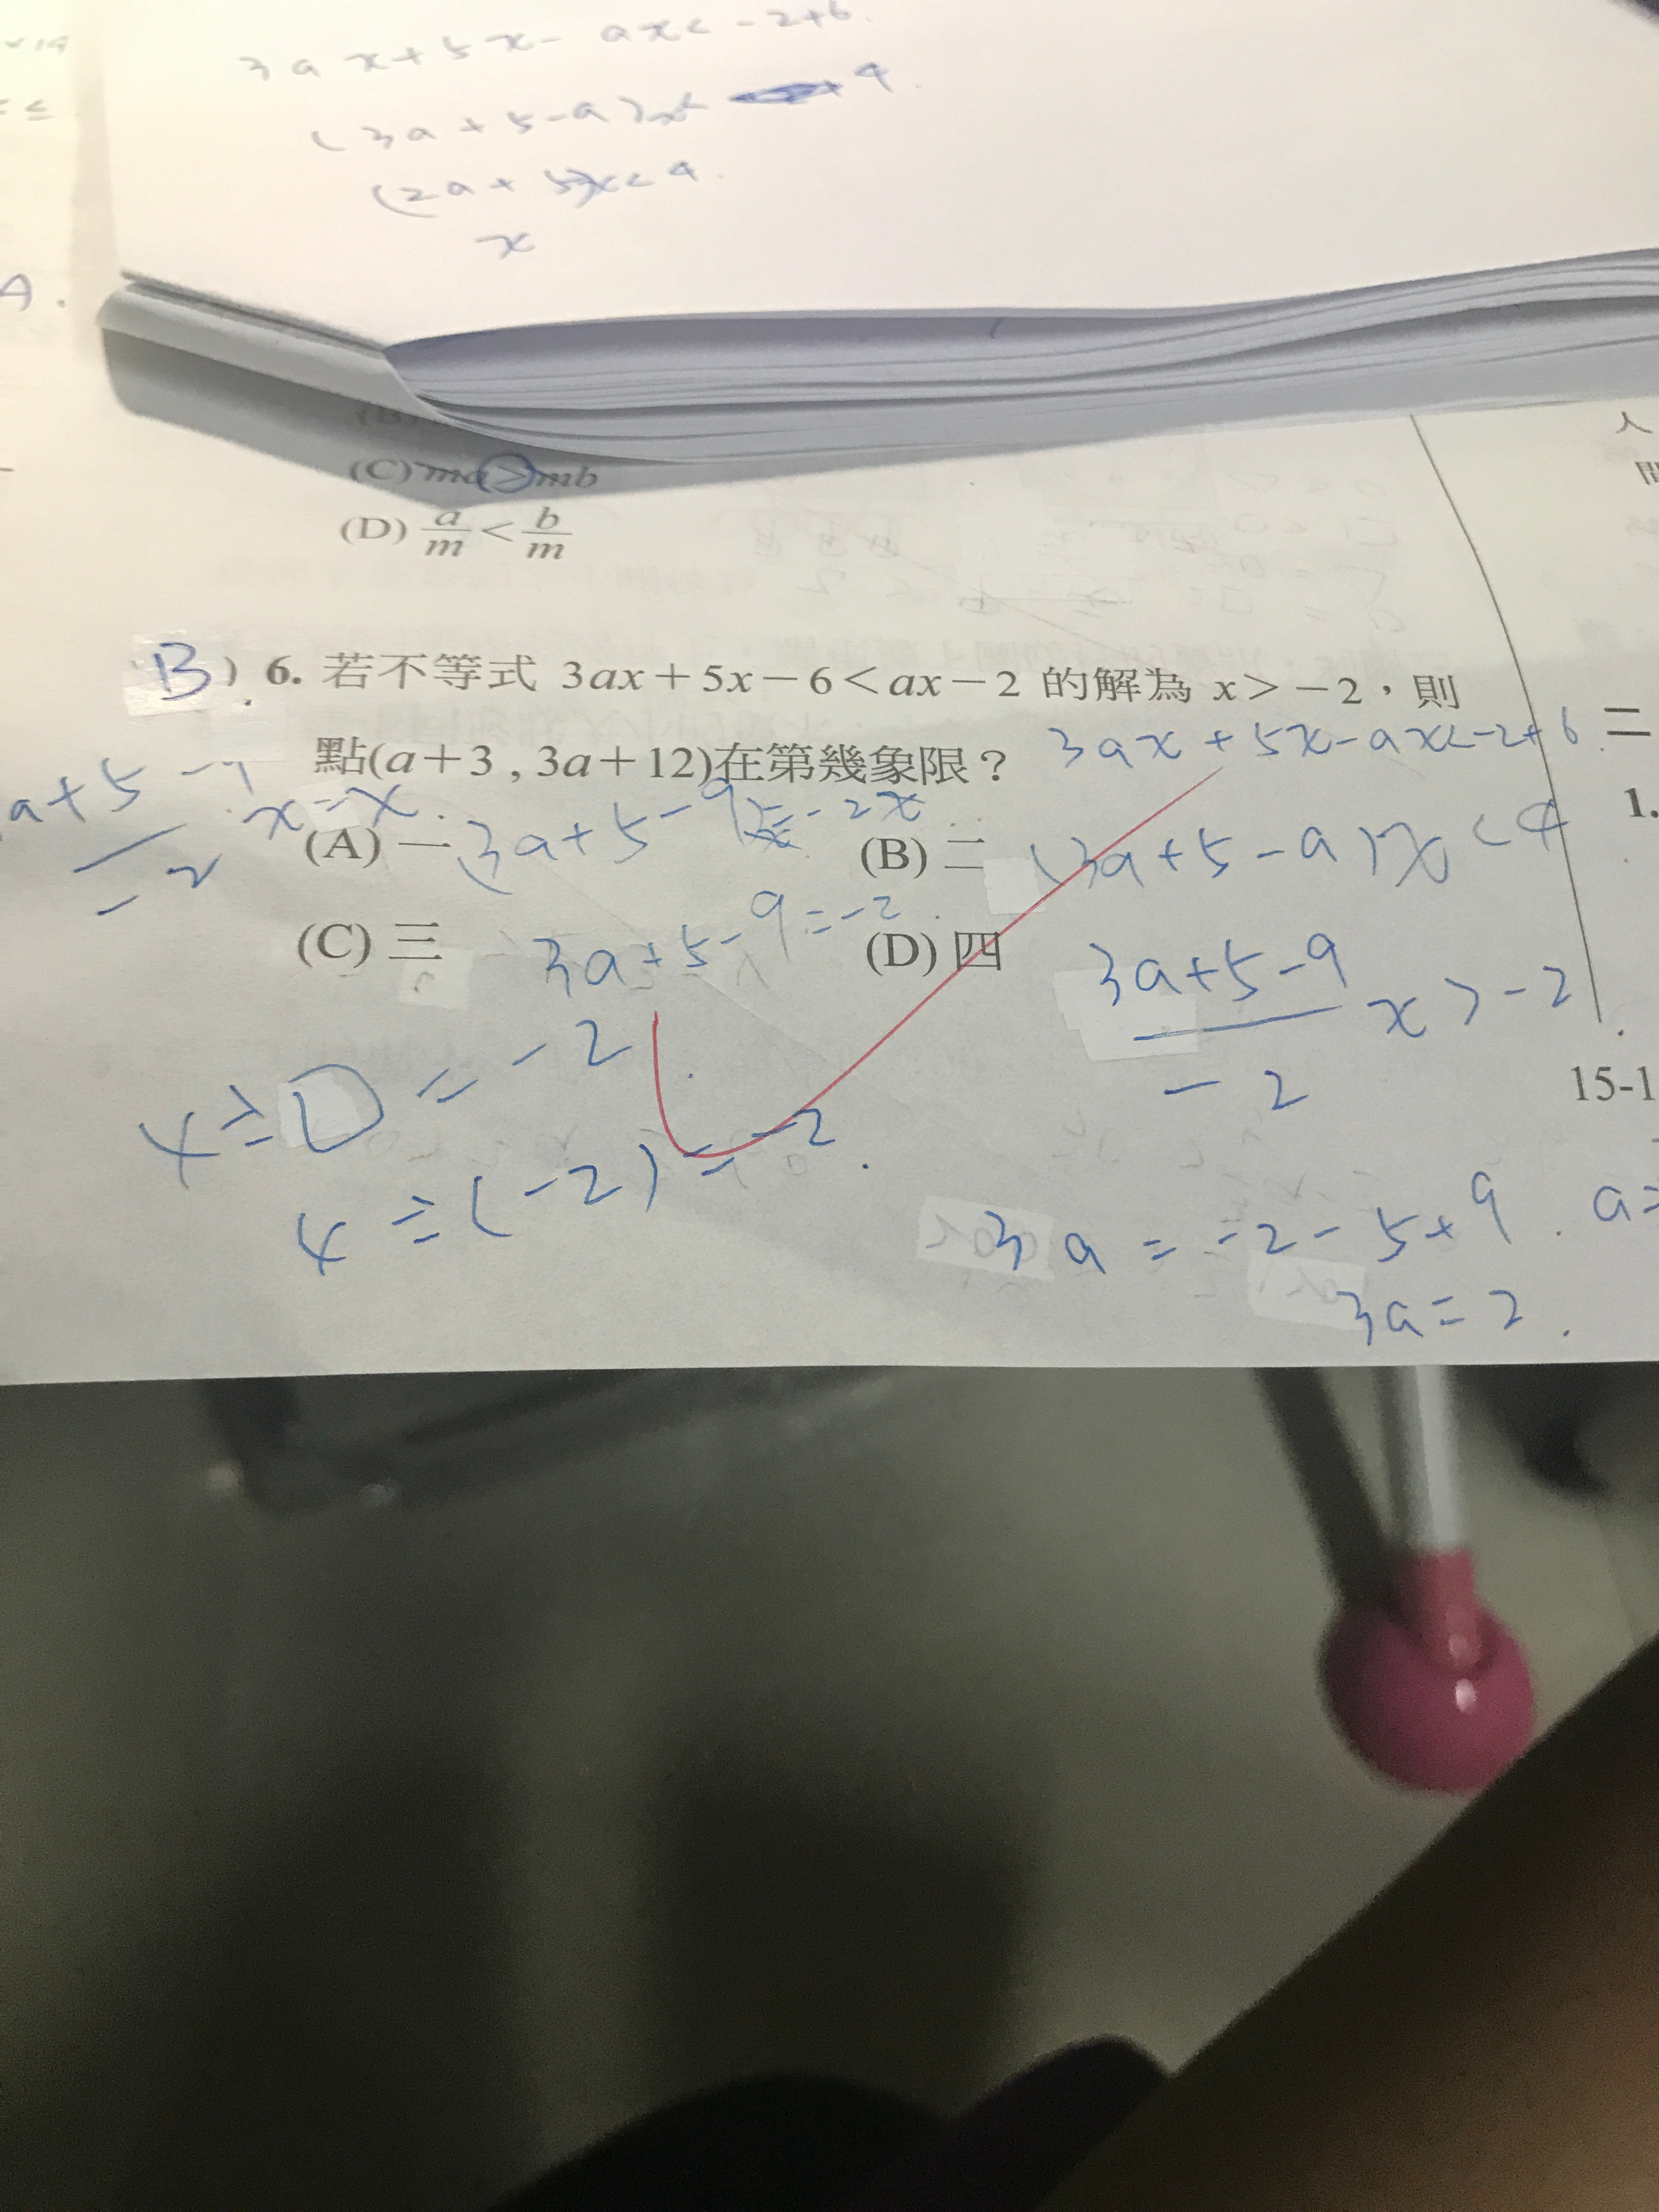 3ax+5x-ax<-2+6.
(3a+5-a)x< 4.
(2a+5)x<4.
x
(C) ma>mb
(D) a/m < b/m
B ) 6. 若不等式 3ax+5x−6<ax−2 的解為 x>−2，則
點(a+3 , 3a+12)在第幾象限？
3ax+5x-ax<-2+6.
(A) 一
(B) 二
(3a+5-a)x<4
(C) 三
3a+5-9=-2.
(D) 四
3a+5-9
x>-2
-2
4÷□=-2.
4÷(-2)=-2.
3a=-2-5+9.
a=
3a=2.
二
1.
15-1